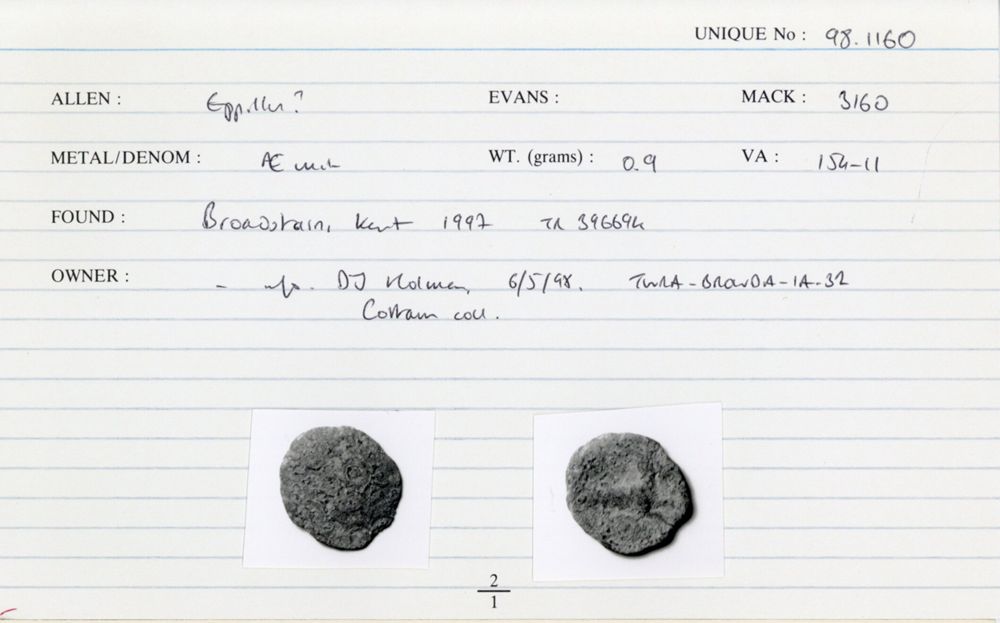 UNIQUE No : 98.1160
ALLEN : Eppillus? EVANS : MACK : 316o
METAL/DENOM : Æ unit WT. (grams) : 0.9 VA : 154-11
FOUND : Broadstairs, Kent 1997 TR 396694
OWNER : - info. DJ Holman, 6/5/98.
Cottam coll.
2
1